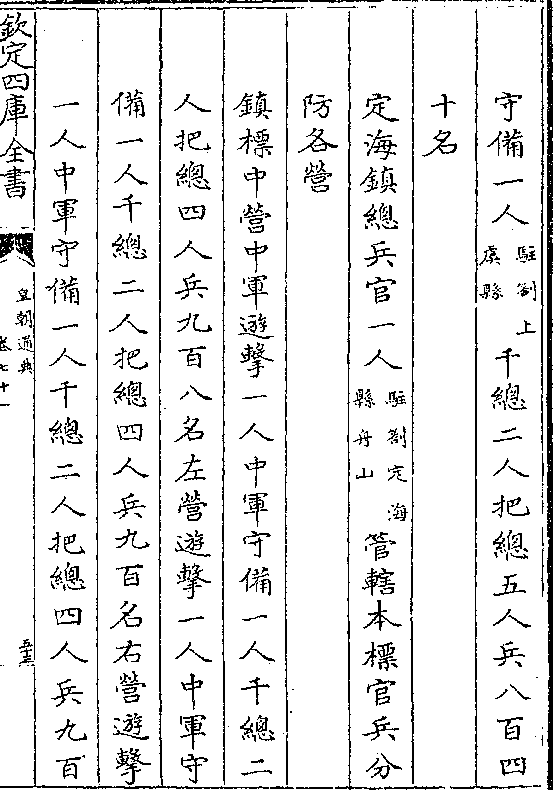 守備一人駐劄上虞縣千總二人把總五人兵八百四
十名
定海鎮總兵官一人駐劄定海縣舟山管轄本標官兵分
防各營
鎮標中營中軍遊擊一人中軍守備一人千總二
人把總四人兵九百八名左營遊擊一人中軍守
備一人千總二人把總四人兵九百名右營遊擊
一人中軍守備一人千總二人把總四人兵九百
欽定四庫全書
皇朝通典
卷七十一
五十三